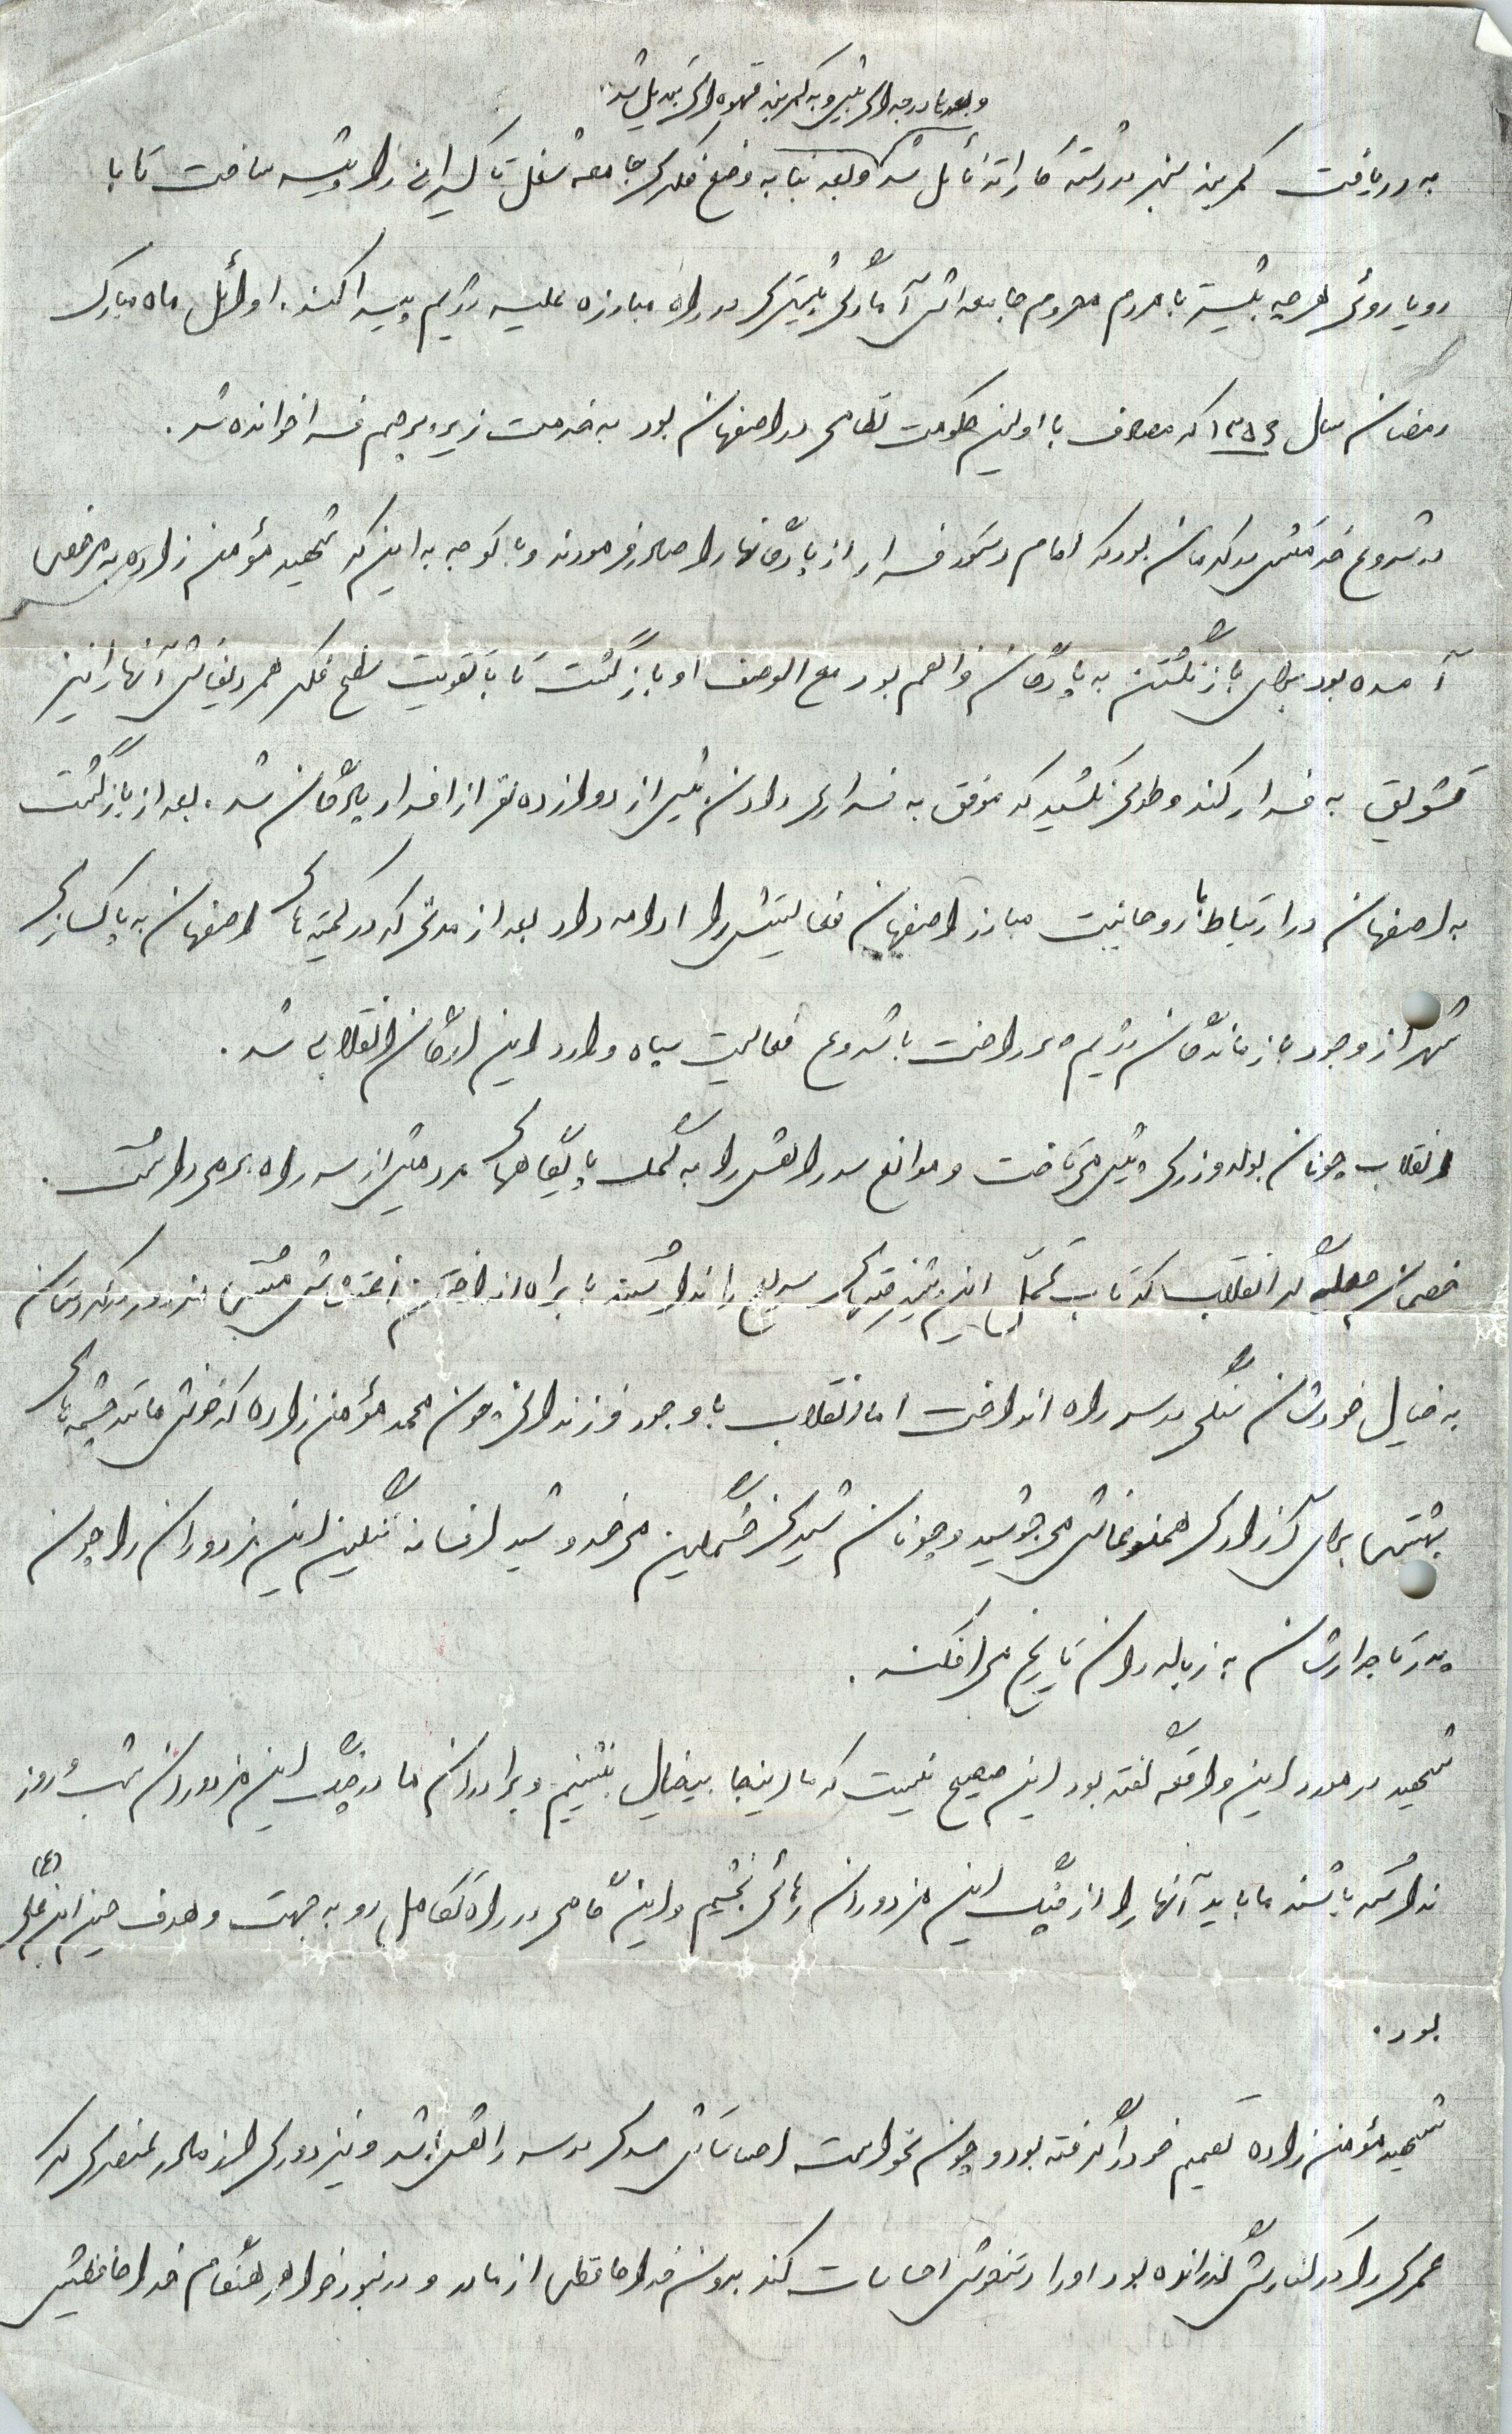 و بعدها درجه‌ای بیش و به کمربند قهوه‌ای تبدیل شد.
به دریافت کمربند سبز در رشته کاراته نائل شد و بعد بنا به وضع فکری جامعه شغل تاکسیرانی را پیشه ساخت تا با
رویاروئی هر چه بیشتر با مردم محروم جامعه‌اش آمادگی بیشتری در راه مبارزه علیه رژیم پیدا کند. اوائل ماه مبارک
رمضان سال ۱۳۵۶ که مصادف با اولین حکومت نظامی در اصفهان بود به خدمت زیر پرچم فرا خوانده شد.
در شروع خدمتش در کرمان بود که امام دستور فرار از پادگانها را صادر فرمودند و با توجه به این که شهید مؤمن زاده به مرخصی
آمده بود برای بازنگشتن به پادگان فراهم بود مع الوصف او بازگشت تا با تقویت سطح فکر هم ردیفانش آنها را نیز
تشویق به فرار کند و طولی نکشید که موفق به فراری دادن بیش از دوازده نفر از افراد پادگان شد. بعد از بازگشت
به اصفهان در ارتباط با روحانیت مبارز اصفهان فعالیتش را ادامه داد بعد از مدتی که در کمیته‌های اصفهان به پاکسازی
شهر از وجود بازماندگان رژیم می‌پرداخت با شروع فعالیت سپاه وارد این ارگان انقلابی شد.
انقلاب چونان بولدوزری پیش می‌تاخت و موانع سد راهش را به کمک پایگاههای مردمیش از سر راه برمی‌داشت.
خصمان انقلاب که تاب تحمل این پیشرفتهای سریع را نداشتند با براه انداختن مزدور کردستان
به خیال خودشان سنگی در سر راه انداخت اما انقلاب با وجود فرزندانی چون محمد مؤمن زاده که خونش مانند چشمه‌های
بهشتی برای آزادی همنوعانش می‌جوشید و چونان شیری خشمگین می‌خروشید افسانه ننگین این مزدوران را چون
پدر تاجدارشان به زباله‌دان تاریخ می‌افکند.
شهید در مورد این واقعه گفته بود این صحیح نیست که ما اینجا بیخیال بنشینیم و برادران ما در چنگ این مزدوران شب و روز
نداشته باشند ما باید آنها را از چنگ این مزدوران رهائی بخشیم و این گامی در راه تکامل رو به جهت و هدف حسین ابن علی (ع)
بود.
شهید مؤمن زاده تصمیم خود را گرفته بود و چون نمی‌خواست احساساتش سدی در سر راهش باشد و نیز دوری از مادر عنصری که
عمری را در کنارش گذرانده بود او را دستخوش احساسات کند بدون خداحافظی از مادر و در نبود خواهر هنگام خداحافظیش